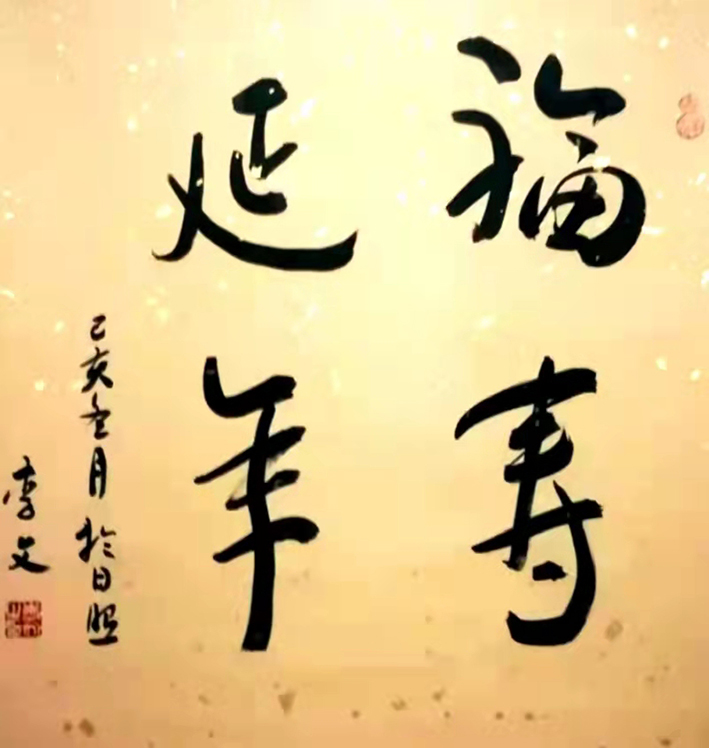 福寿
延年
己亥冬月於日照
李文